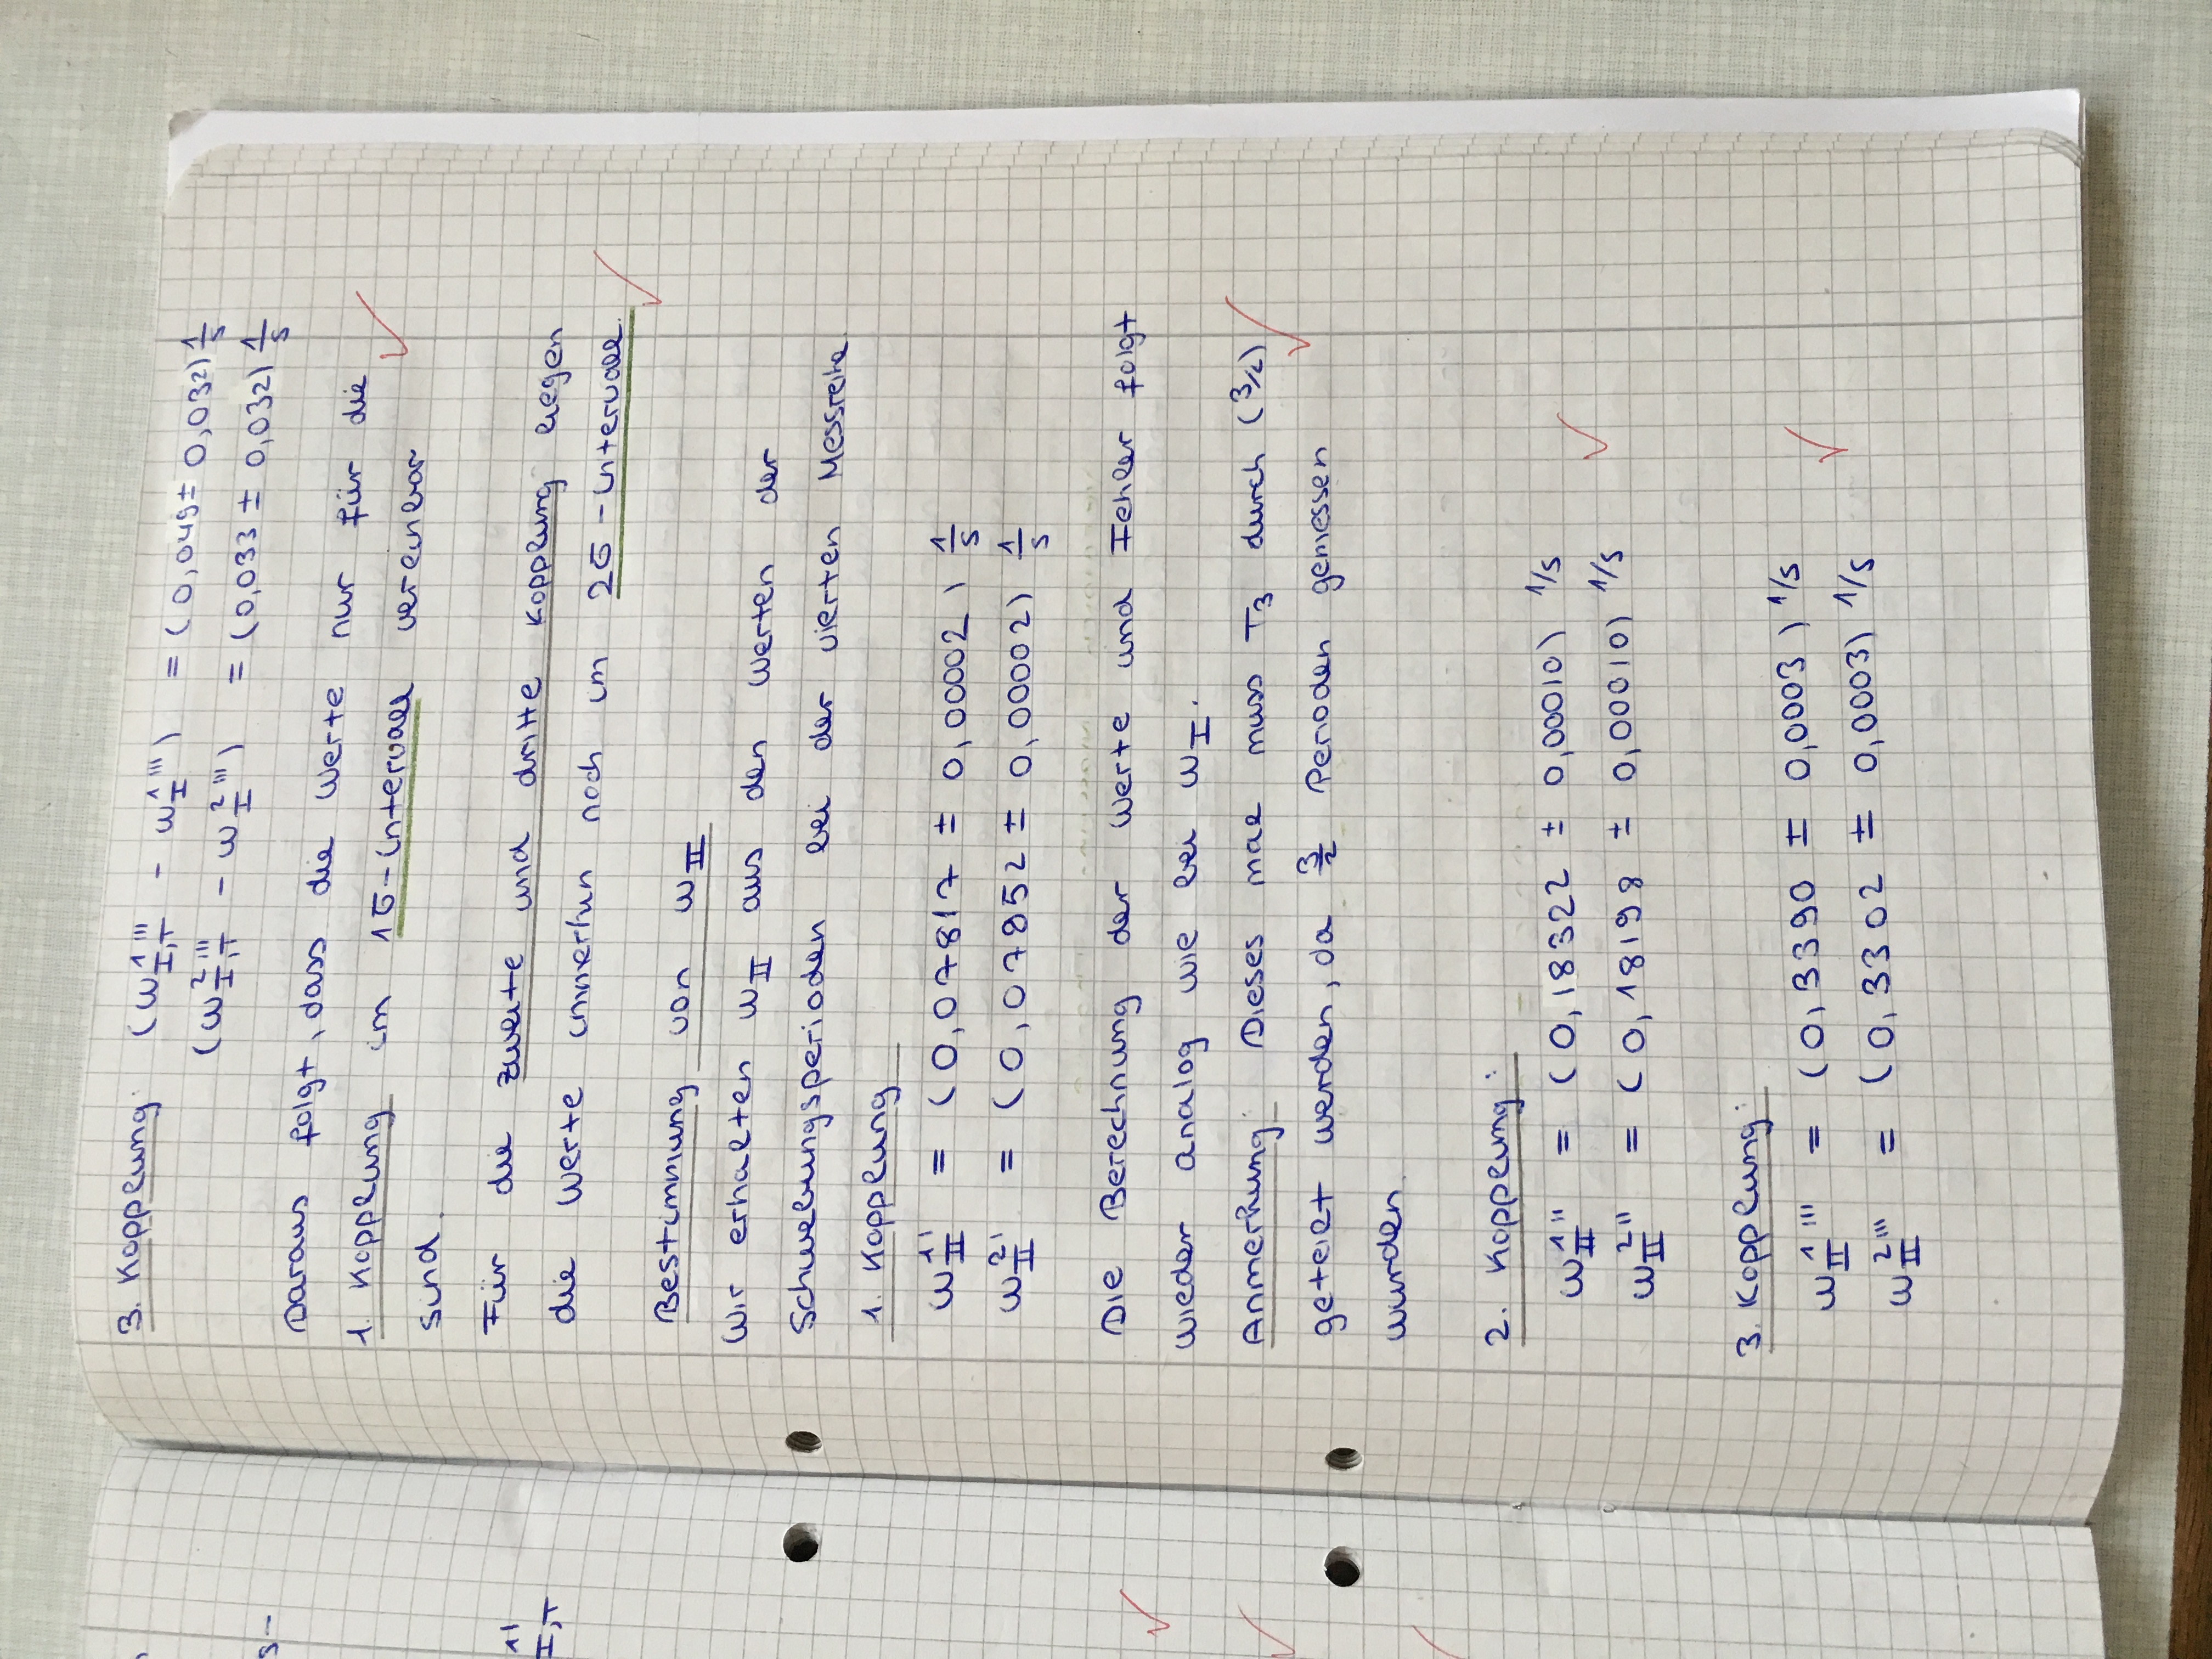 3. Kopplung: (ω_I,T^1''' - ω_I^1''') = (0,049 ± 0,032) 1/s
(ω_I,T^2''' - ω_I^2''') = (0,033 ± 0,032) 1/s
Daraus folgt, dass die Werte nur für die
1. Kopplung im 1σ-Intervall vereinbar
sind.
Für die zweite und dritte Kopplung liegen
die Werte immerhin noch im 2σ-Intervall.
Bestimmung von ω_II
Wir erhalten ω_II aus den Werten der
Schwebungsperioden bei der vierten Messreihe
1. Kopplung
ω_II^1' = (0,07817 ± 0,00002) 1/s
ω_II^2' = (0,07852 ± 0,00002) 1/s
Die Berechnung der Werte und Fehler folgt
wieder analog wie bei ω_I.
Anmerkung: Dieses mal muss T_3 durch (3/2)
geteilt werden, da 3/2 Perioden gemessen
wurden.
2. Kopplung:
ω_II^1'' = (0,18322 ± 0,00010) 1/s
ω_II^2'' = (0,18198 ± 0,00010) 1/s
3. Kopplung:
ω_II^1''' = (0,3390 ± 0,0003) 1/s
ω_II^2''' = (0,3302 ± 0,0003) 1/s
s-
1'
I,T